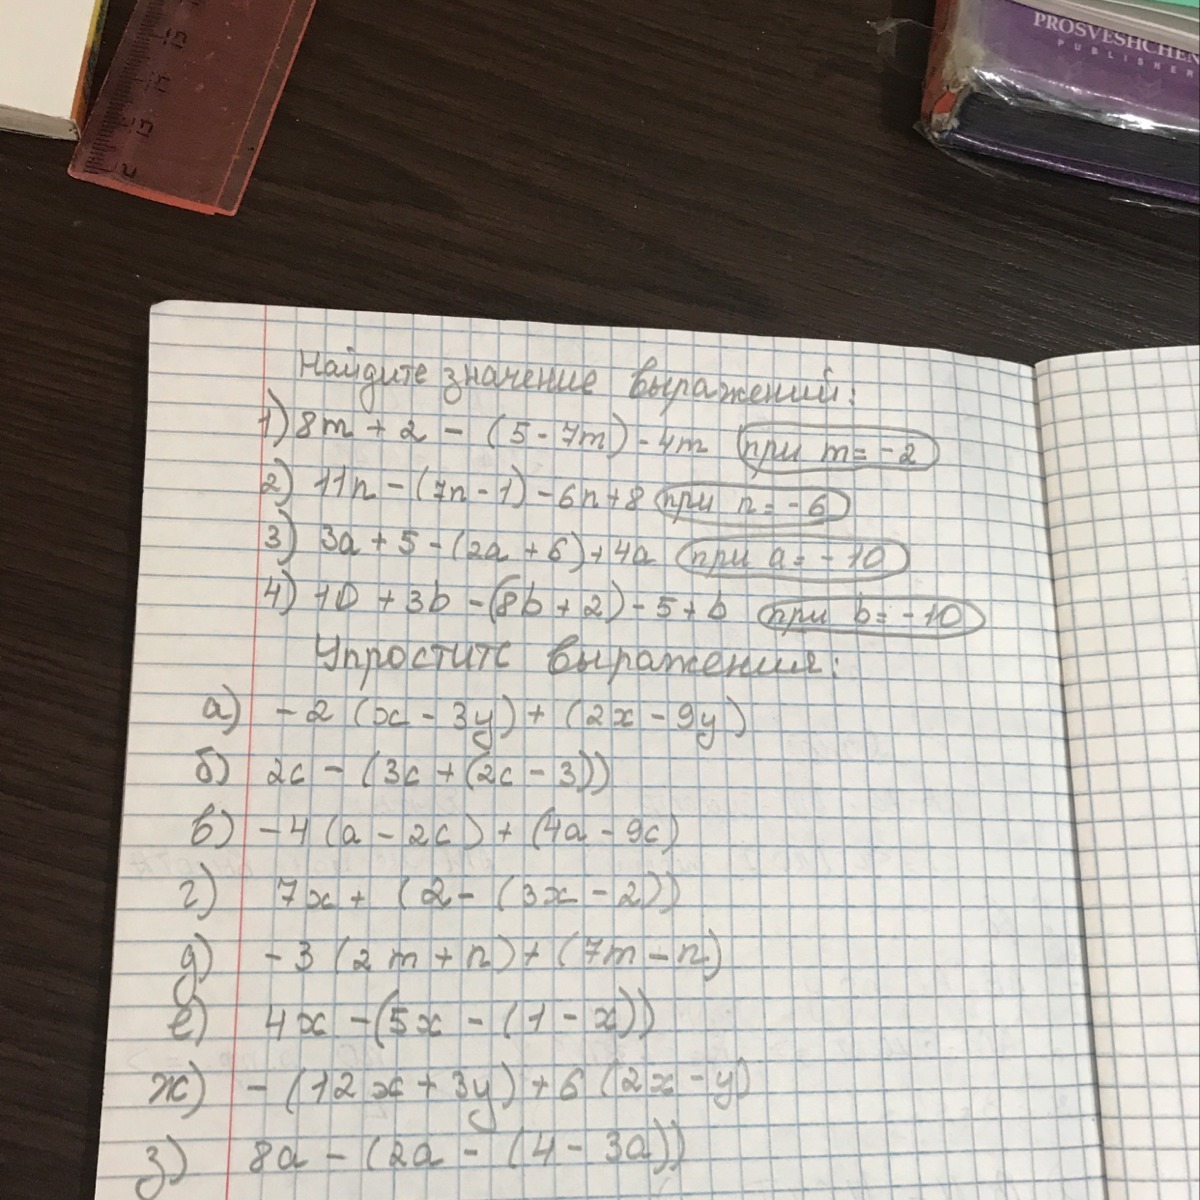 PROSVESHCHEN
PUBLISHER
Найдите значение выражений:
1) 8m + 2 - (5 - 7m) - 4m при m = -2
2) 11n - (7n - 1) - 6n + 8 при n = -6
3) 3a + 5 - (2a + 6) + 4a при a = -10
4) 10 + 3b - (8b + 2) - 5 + b при b = -10
Упростите выражения:
а) -2 (x - 3y) + (2x - 9y)
б) 2c - (3c + (2c - 3))
в) -4 (a - 2c) + (4a - 9c)
г) 7x + (2 - (3x - 2))
д) -3 (2m + n) + (7m - n)
е) 4x - (5x - (1 - x))
ж) - (12x + 3y) + 6 (2x - y)
з) 8a - (2a - (4 - 3a))